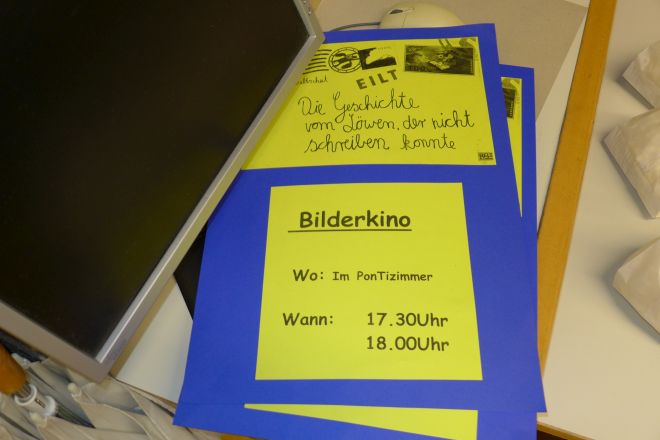 EILT
Die Geschichte
vom Löwen, der nicht
schreiben konnte
Bilderkino
Wo: Im PonTizimmer
Wann: 17.30Uhr
18.00Uhr